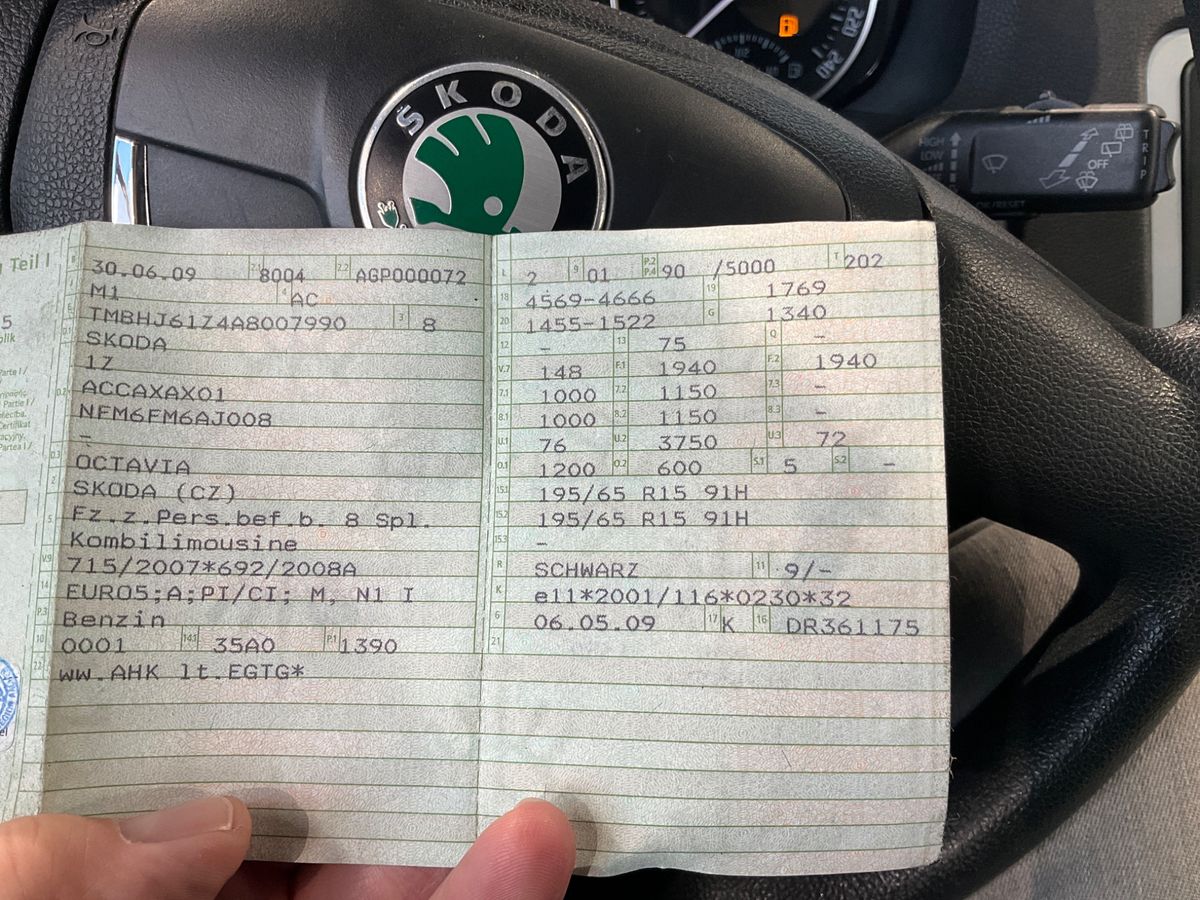 ŠKODA
220
240
HIGH
LOW
OFF
TRIP
OK/RESET
Teil I
B 30.06.09 2.1 8004 2.2 AGP000072
J M1 4 AC
E TMBHJ61Z4A8007990 3 8
D.1 SKODA
1Z
D.2 ACCAXAX01
NFM6FM6AJ008
-
D.3 OCTAVIA
2 SKODA (CZ)
5 Fz.z.Pers.bef.b. 8 Spl.
Kombilimousine
V.9 715/2007*692/2008A
14 EURO5;A;PI/CI; M, N1 I
P.3 Benzin
10 0001 14.1 35A0 P.1 1390
22 ww.AHK lt.EGTG*
L 2 9 01 P.2 P.4 90 /5000 T 202
18 4569-4666 19 1769
20 1455-1522 G 1340
12 - 13 75 Q -
V.7 148 F.1 1940 F.2 1940
7.1 1000 7.2 1150 7.3 -
8.1 1000 8.2 1150 8.3 -
U.1 76 U.2 3750 U.3 72
O.1 1200 O.2 600 S.1 5 S.2 -
15.1 195/65 R15 91H
15.2 195/65 R15 91H
15.3 -
R SCHWARZ 11 9/-
K e11*2001/116*0230*32
6 06.05.09 17 K 16 DR361175
21